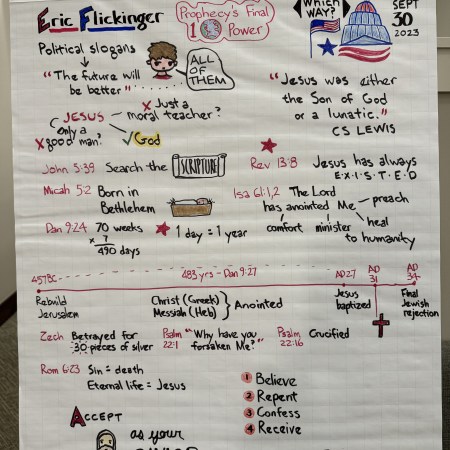 Eric Flickinger
Prophecy's Final
10 Power
WHICH WAY?
SEPT
30
2023
Political slogans
"The future will
be better"
ALL
OF
THEM
"Jesus was either
the Son of God
or a lunatic."
CS LEWIS
JESUS
x Just a
moral teacher?
only a
x good man?
✓ God
John 5:39 Search the SCRIPTURE
Rev 13:8 Jesus has always
E·X·I·S·T·E·D
Micah 5:2 Born in
Bethlehem
Isa 61:1,2 The Lord
has anointed Me
preach
heal
comfort minister
to humanity
Dan 9:24 70 weeks
x 7
490 days
★ 1 day = 1 year
457BC
483 yrs - Dan 9:27
AD 27
AD
31
AD
34
Rebuild
Jerusalem
Christ (Greek)
Messiah (Heb) } Anointed
Jesus
baptized
Final
Jewish
rejection
Zech Betrayed for
30 pieces of silver
Psalm
22:1 "Why have you
forsaken Me?"
Psalm
22:16 Crucified
Rom 6:23 Sin = death
Eternal life = Jesus
1 Believe
2 Repent
3 Confess
4 Receive
ACCEPT
as your